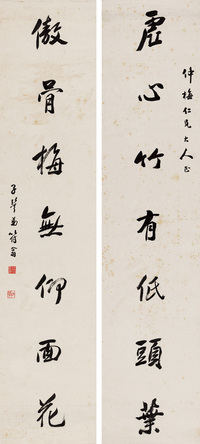 仲梅仁兄大人正
虛心竹有低頭葉
傲骨梅無仰面花